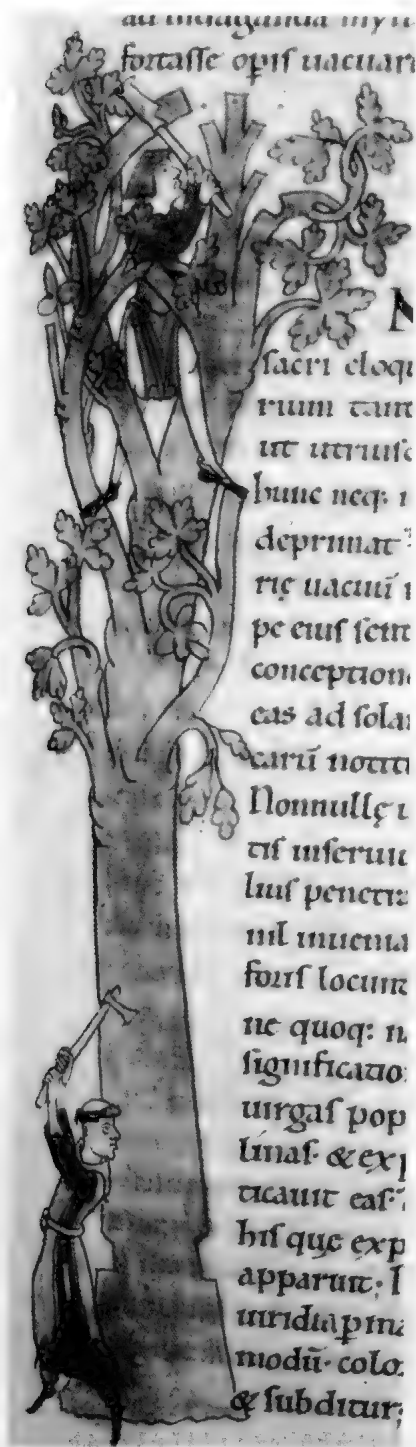 fortasse opis uacuari
N
sacri eloqu
rium tant
ut utrius
hunc neq; n
deprimat
rie uacuu
pe eius sent
conceptione
eas ad sola
caru notiti
Nonnulle u
tis inseruu
lius penetra
nil inuenia
foris locunt
ne quoq; n
significatio
uirgas pop
linas & exp
ticauit eas
his que exp
apparuit; I
uiridia p ma
modu colo
& subditur;